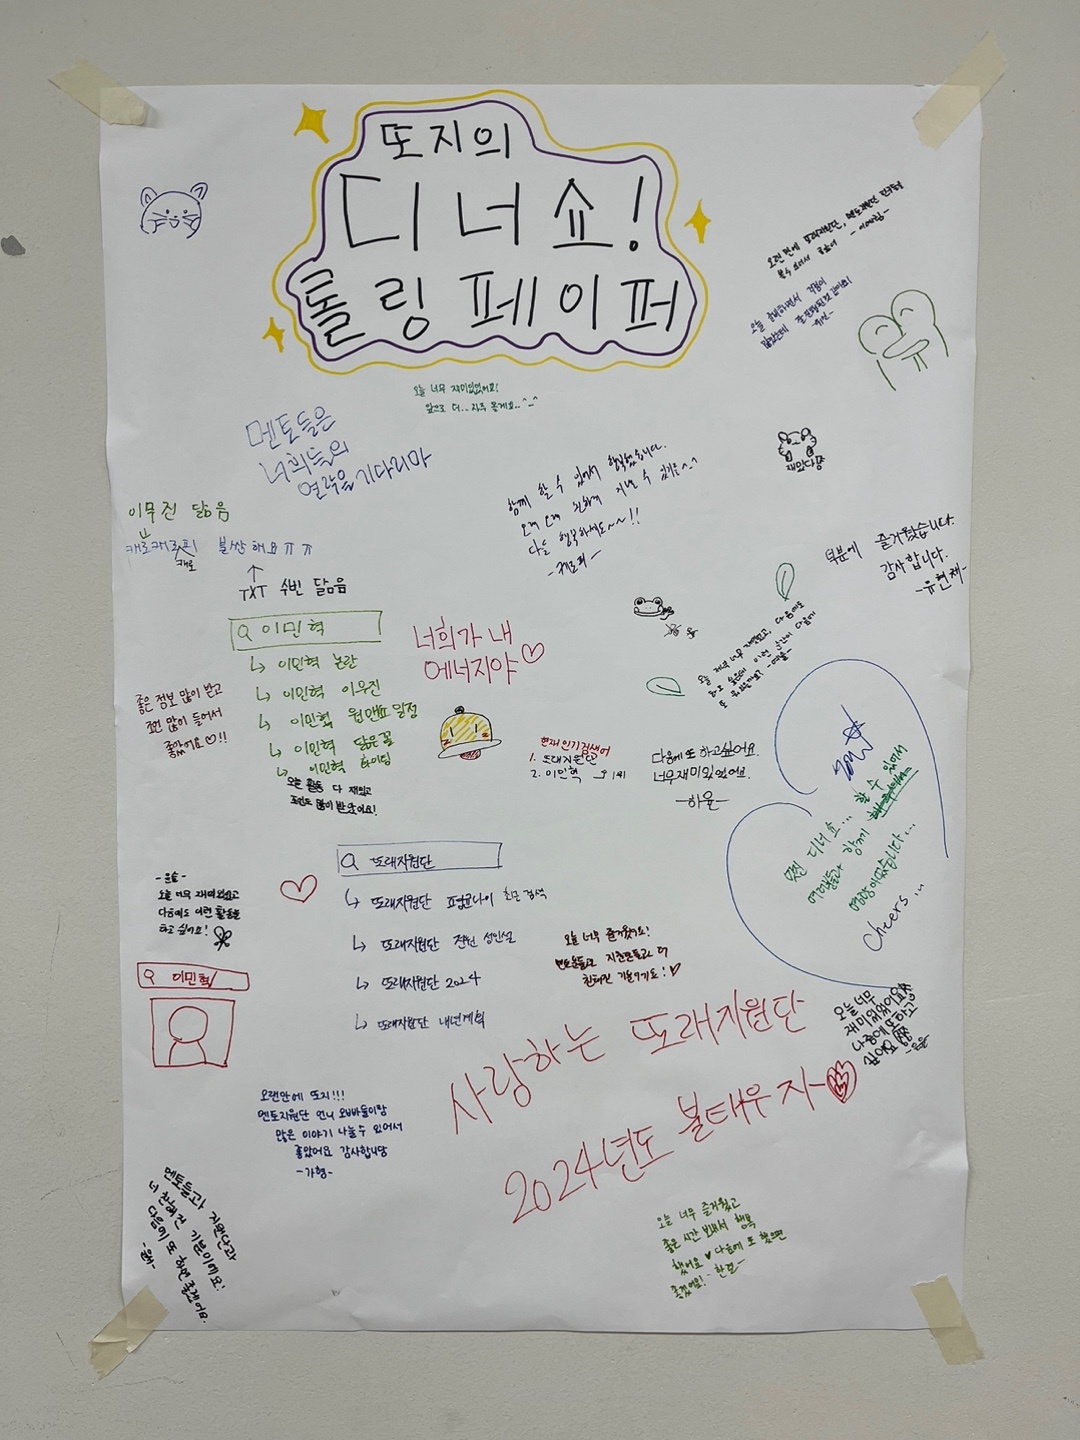 또지의
디너쇼!
롤링페이퍼
오늘 너무 재미있었어요!
앞으로 더.. 자주 올게요..^_^
멘토들은
너희들의
연락을 기다리마
함께 할 수 있어서 행복했습니다.
오래오래 친하게 지낼 수 있기를^_^
다들 행복하세요~~!!
-캐로피-
재밌다증
이무진 닮음
불쌍해요ㅠㅠ
TXT 수빈 닮음
덕분에 즐거웠습니다.
감사합니다.
-유현재-
이민혁
이민혁 논란
이민혁 이무진
이민혁 원맨쇼 일정
이민혁 닮은꼴
이민혁 화이팅
오늘 활동 다 재밌고
조언도 많이 받았어요!
너희가 내
에너지야♡
좋은 정보 많이 받고
조언 많이 들어서
좋았어요♡!!
현재 인기검색어
1. 또래지원단
2. 이민혁
다음에 또 하고싶어요.
너무 재미있었어요.
-하율-
멋진 디너쇼... 할 수 있어서
여러분들과 함께
영광이었습니다...
Cheers..
-윤슬-
오늘 너무 재미있었고
다음에도 이런 활동을
하고 싶어요!
또래지원단
또래지원단 포켓로나이 최근 검색
또래지원단 전원 성인설
또래지원단 2024
또래지원단 내년계획
오늘 너무 즐거웠어요!
멘토분들과 지원단분들과 더
친해진 기분이기도!♡
이민혁
사랑하는 또래지원단
2024년도 불태우자~
오늘 너무
재미있었어요
나중에 또 하고
싶어요
오랜만에 또지!!!
멘토지원단 언니 오빠들이랑
많은 이야기 나눌 수 있어서
좋았어요 감사합니당
-가형-
멘토들과 지원단과
더 친해진 기분이에요!
다음에 또 하면 좋겠어요.
오늘 너무 즐거웠고
좋은 시간 보내서 행복
했어요♥ 다음에 또 했으면
좋겠어요! -한결-